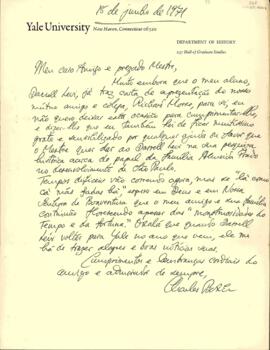 18 de junho de 1971
Yale University New Haven, Connecticut 06520
DEPARTMENT OF HISTORY
237 Hall of Graduate Studies
Meu caro Amigo e prezado Mestre,
Muito embora que o meu aluno,
Darrell Levi, já traz carta de apresentação do nosso
mútuo amigo e colega, Richard Morse, para vs, eu
não quero deixar esta ocasião para cumprimentar-lhe,
e dizer-lhe que eu também hei de ficar muitíssimo
grato e sensibilizado por qualquer ajuda ou favor que
o Mestre quer dar ao Darrell Levi na sua pesquisa
histórica acerca do papel da família Almeida Prado
no desenvolvimento de São Paulo.
Tempos difíceis vão correndo agora, mas de "lá como
cá más fadas há" espero em Deus e em Nossa
Senhora de Boaventura que o meu amigo e sua família
continuam florescendo apesar das "importunidades do
tempo e da fortuna." Oxalá que quando Darrell
Levi voltar para Yale no ano que vem, ele me
há de trazer alegres e boas notícias suas.
Cumprimentos e lembranças cordiais do
amigo e admirador de sempre,
Charles Boxer